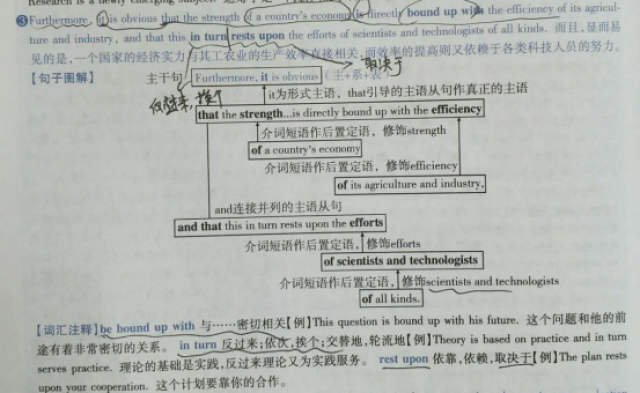 ❸Furthermore, it is obvious that the strength of a country's economy is directly bound up with the efficiency of its agricul-
ture and industry, and that this in turn rests upon the efforts of scientists and technologists of all kinds. 而且,显而易
见的是,一个国家的经济实力与其工农业的生产效率直接相关,而效率的提高则又依赖于各类科技人员的努力。
取决于
【句子图解】 主干句 Furthermore, it is obvious (主+系+表)
反过来,挨个
it为形式主语，that引导的主语从句作真正的主语
that the strength...is directly bound up with the efficiency
介词短语作后置定语，修饰strength
of a country's economy
介词短语作后置定语，修饰efficiency
of its agriculture and industry,
and连接并列的主语从句
and that this in turn rests upon the efforts
介词短语作后置定语，修饰efforts
of scientists and technologists
介词短语作后置定语，修饰scientists and technologists
of all kinds.
【词汇注释】be bound up with 与……密切相关【例】This question is bound up with his future. 这个问题和他的前
途有着非常密切的关系。 in turn 反过来;依次,挨个;交替地,轮流地【例】Theory is based on practice and in turn
serves practice. 理论的基础是实践,反过来理论又为实践服务。 rest upon 依靠,依赖,取决于【例】The plan rests
upon your cooperation. 这个计划要靠你的合作。